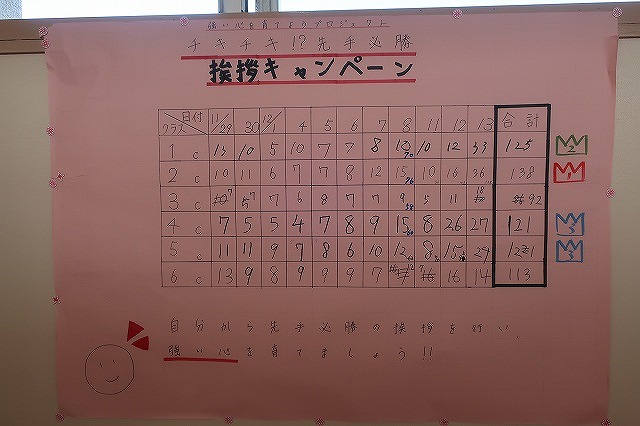 強い心を育てようプロジェクト
チキチキ!?先手必勝
挨拶キャンペーン
日付 クラス 11/29 30 12/1 4 5 6 7 8 11 12 13 合計
1c 13 10 5 10 7 7 8 10 10 12 33 125
2c 10 11 6 7 7 8 12 15 10 16 36 138 1
3c 7 7 7 6 8 7 7 9 5 11 18 92
4c 7 5 5 4 7 8 9 15 8 26 27 121 3
5c 11 11 9 7 8 6 10 12 8 15 29 121 3
6c 13 9 8 9 9 9 7 12 7 16 14 113
自分から先手必勝の挨拶を行い、
強い心を育てましょう!!